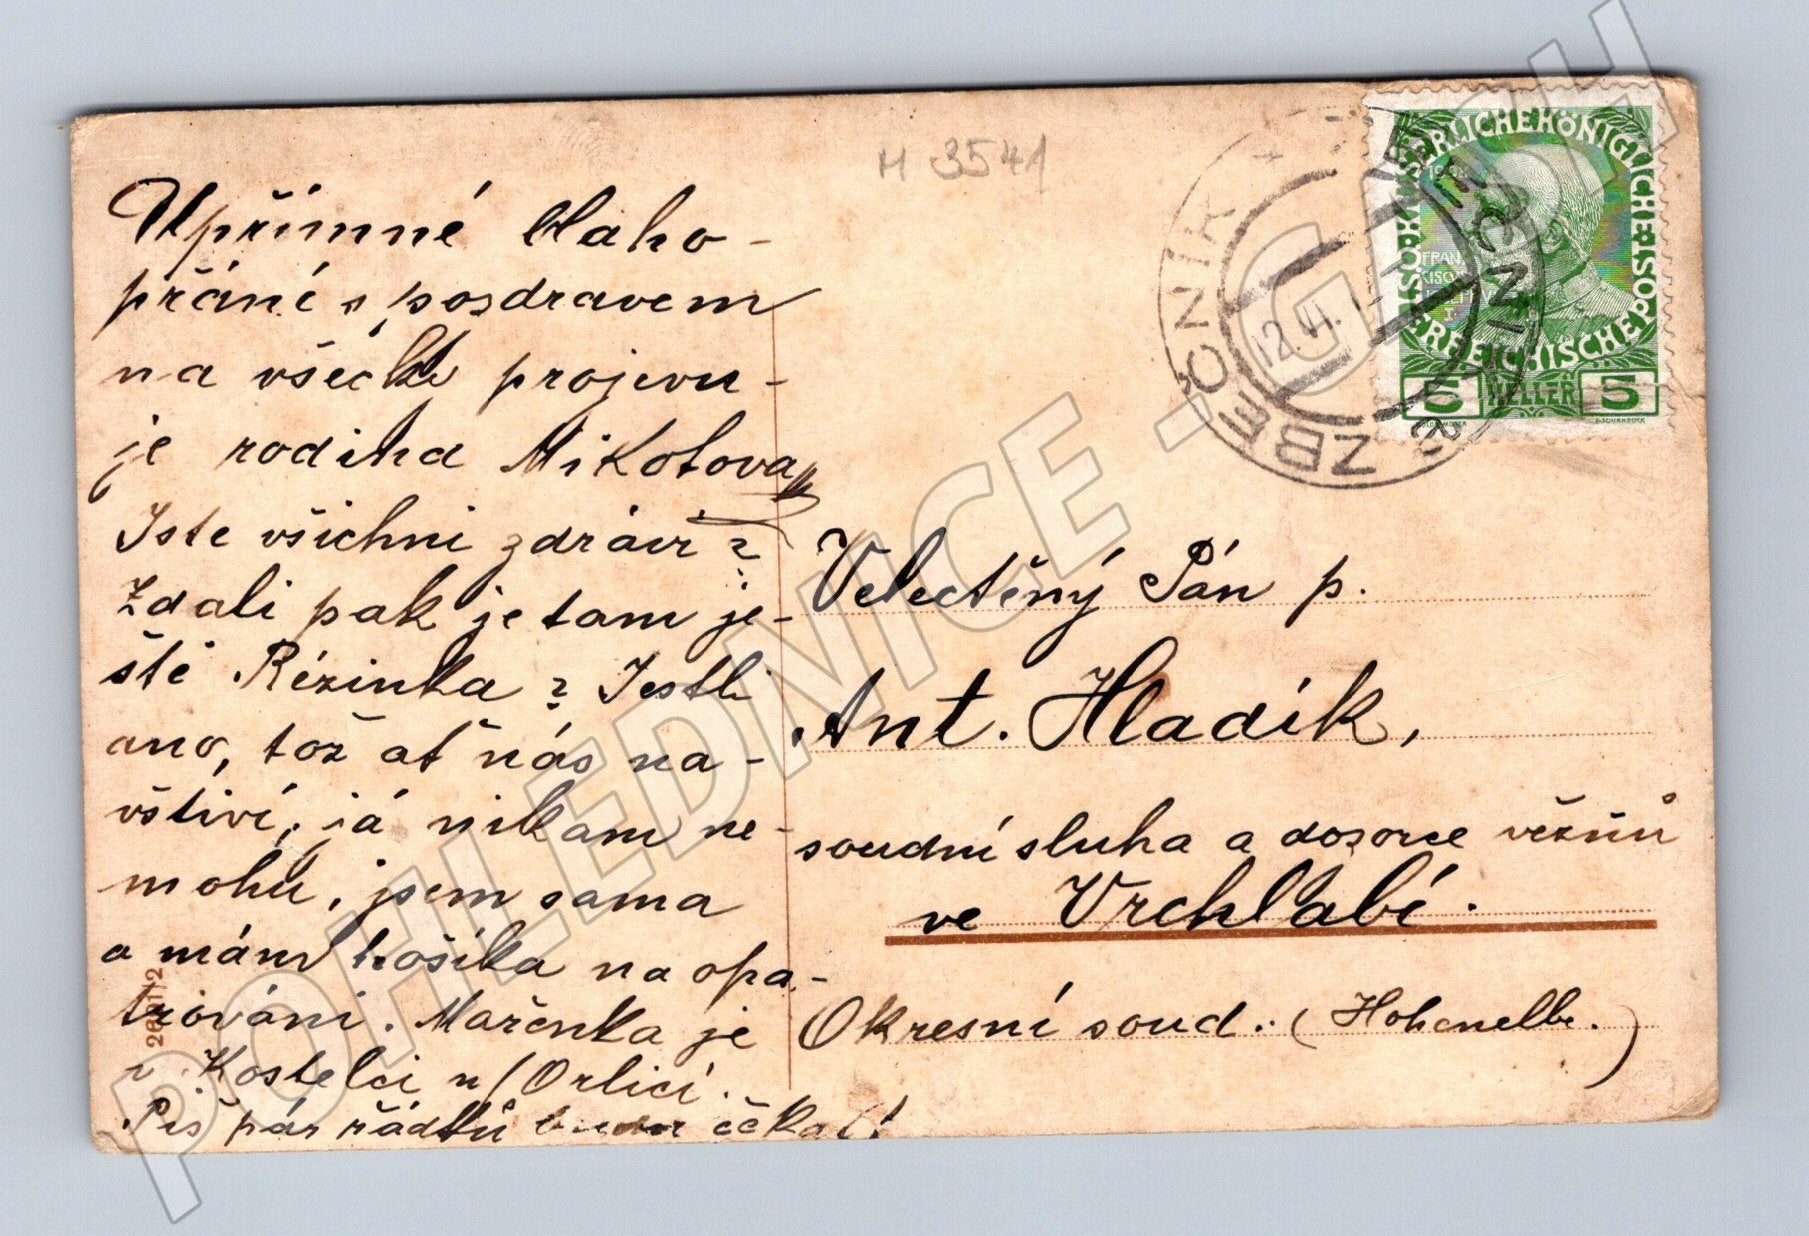 H 3541
Upřímné blaho-
přání s pozdravem
na všecky projevu-
je rodina Mikotova
Jste všichni zdrávi?
Zdali pak je tam je-
ště Rézinka? Jestli
ano, tož ať nás na-
vštíví, já nikam ne-
mohu, jsem sama
a mám hošíka na opa-
trování. Mařenka je
v Kostelci n/Orlicí.
Piš pár řádků budu čekat!
26 11/2
Velectěný Pán p.
Ant. Hladík,
soudní sluha a dozorce vězňů
ve Vrchlabí.
Okresní soud. (Hohenelbe.)
ZBEČNÍK
12.VI.1
KAISERLICHE KÖNIGLICHE
ÖSTERREICHISCHE POST
FRANZ
5 HELLER 5
POHLEDNICE -